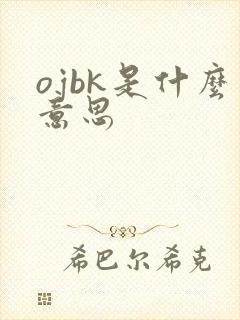 ojbk是什麼
意思
希巴尔希克